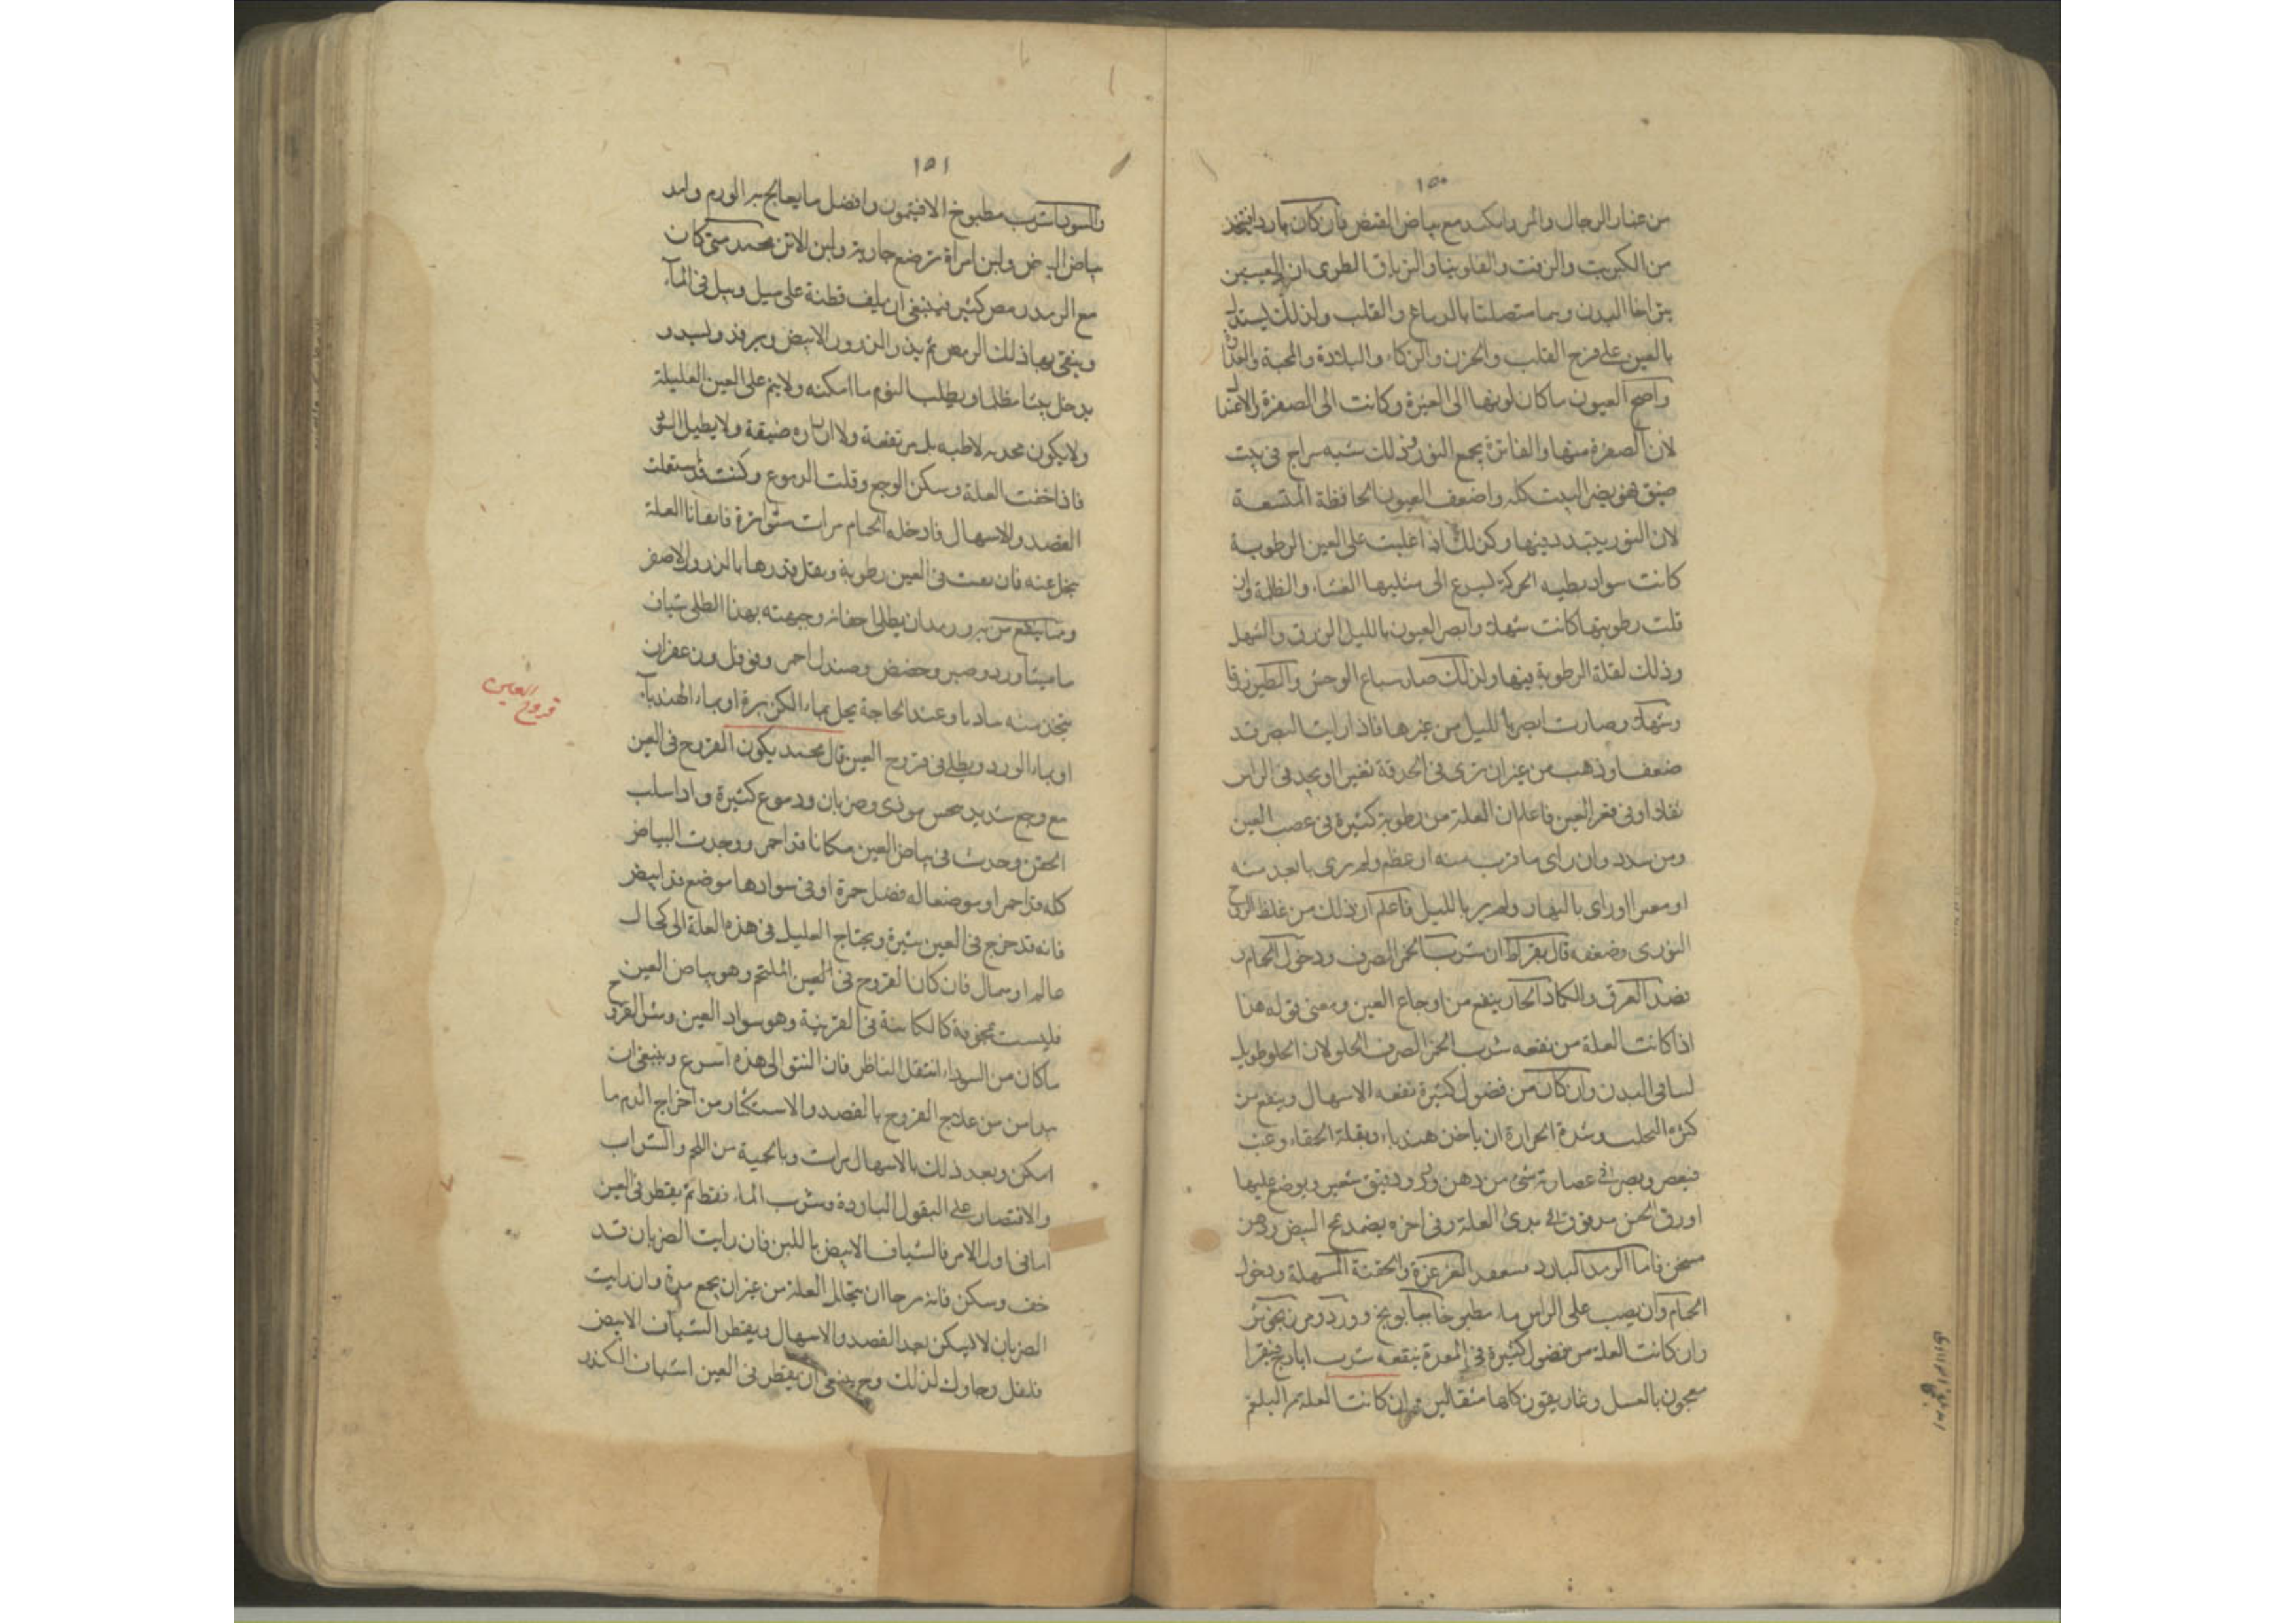 ١٥٠
من غبار الرجال والمر والكندر مع بياض البيض فان كان باردا فيتخذ
من الكبريت والزفت والفاوينا والترياق الطري ان العينين
بالعين على فرح القلب والحزن والذكاء والبلادة والمحبة والعداوة
واصح العيون ما كان لونها الى الغبرة وكانت الى الصغرة والاعتدال
لان الصغرة منها والفاترة يجمع النور وذلك شبه سراج في بيت
ضيق فهو يضئ البيت كله واضعف العيون الجاحظة المتسعة
لان النور يتبدد فيها وكذلك اذا غلبت على العين الرطوبة
كانت سواد بطيه الحركة ليسرع الى مثلها الغشاء والظلمة وان
قلت رطوبتها كانت شهلا وابصر العيون بالليل الزرق والشهل
وذلك لقلة الرطوبة فيها ولذلك صار سباع الوحش والطير زرقا
وشهلا وصارت ابصر بالليل من غيرها فاذا رايت البصر قد
ضعف او ذهب من غير ان ترى في الحدقة تغيرا او يجد في الراس
ثقلا او في قعر العين فاعلم ان العلة من رطوبة كثيرة في عصب العين
ومن سدد وان راى ما قرب منه او عظم ولم يرى ما بعد منه
او صغر او راى بالنهار ولم ير بالليل فاعلم ان ذلك من غلظ الروح
النوري وضعفه قال بقراط ان شرب الخمر الصرف ودخول الحمام و
فصد العرق والكماد الحار ينفع من اوجاع العين ومعنى قوله هذا
اذا كانت العلة من نفعه شرب الخمر الصرف الحلو لان الحلو طويل
لسافي البدن وان كان من فضول كثيرة نفعه الاسهال وينفع من
كثرة التحلب وشدة الحرارة ان ياخذ هندباء وبقلة الحمقاء وعنب
فيعصر ويصر في عصارته شئ من دهن ورد ودقيق شعير ويوضع عليها
او ورق الخس مدقوق في بدئ العلة وفي اخره يضمد بمح البيض ودهن
مسخن فاما الرمد البارد الغرغرة والحقنة المسهلة ودخول
الحمام وان يصب على الراس ماء مطبوخا بابونج وورد ومرزنجوش
وان كانت العلة من فضول كثيرة في المعدة ينفعه شرب ايارج فيقرا
معجون بالعسل وغاريقون كلها مثقالين وان كانت العلة من البلغم
١٥١
والسودا شرب مطبوخ الافيتمون وافضل ما يعالج به الورم والرمد
بياض البيض ولبن امراة ترضع جارية ولبن الاتن محمد متى كان
مع الرمد رمص كثير فينبغي ان يلف قطنة على ميل ويبل في الماء
وينقى بها ذلك الرمص ثم يذر الذرور الابيض ويرفد ويشد و
يدخل بيتا مظلما ويطلب النوم ما امكنه ولا ينم على العين العليلة
ولا يكون مخدته لاطيه بل مرتفعة ولا ازراره ضيقة ولا يطيل
فاذا خفت العلة وسكن الوجع وقلت الدموع وكنت قد استعملت
الفصد والاسهال فادخله الحمام مرات متواترة فان بقايا العلة
ينحل عنه فان بقيت في العين رطوبة وثقل فذرها بالذرور الاصفر
ومما ينفع من به رمد ان يطلى اجفانه وجبهته بهذا الطلى شياف
ماميثا وورد وصبر وحضض وصندل احمر وفوفل وزعفران
يتخذ منه شيافا وعند الحاجة يحل بماء الكزبرة او بماء الهندباء
او بماء الورد ويطلى في قروح العين قال محمد يكون القروح في العين
مع وجع شديد نخس موذي وضربان ودموع كثيرة واذا سلب
الجفن وحدث في بياض العين مكانا قد احمر ووجدت البياض
كله قد احمر او موضعا له فضل حمرة او في سوادها موضع قد ابيض
فانه قد خرج في العين بثرة ويحتاج العليل في هذه العلة الى كحال
عالم او سال فان كان القروح في العين الملتحم وهو بياض العين
فليست مخوفة كالكائنة في القرنية وهو سواد العين وشر القروح
ما كان من السوداء انتقل الناظر فان النتو الى هذه اسرع وينبغي ان
يداس من علاج القروح بالفصد والاستكثار من اخراج الدم ما
امكن وبعد ذلك بالاسهال مرات وبالحمية من اللحم والشراب
والاقتصار على البقول الباردة وشرب الماء فقط ثم يقطر في العين
اما في اول الامر فالشياف الابيض باللبن فان رايت الضربان قد
خف وسكن فانه مرجا ان يتحلل العلة من غير ان يجمع مدة وان رايت
الضربان لا يسكن بعد الفصد والاسهال ويقطر الشياف الابيض
ينبغي ان يقطر في العين اشياف الكندر
قروح العين